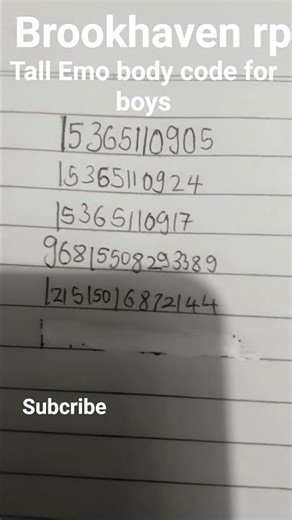 Brookhaven rp
Tall Emo body code for
boys
15365110905
15365110924
15365110917
96815508293389
121515016872144
Subcribe